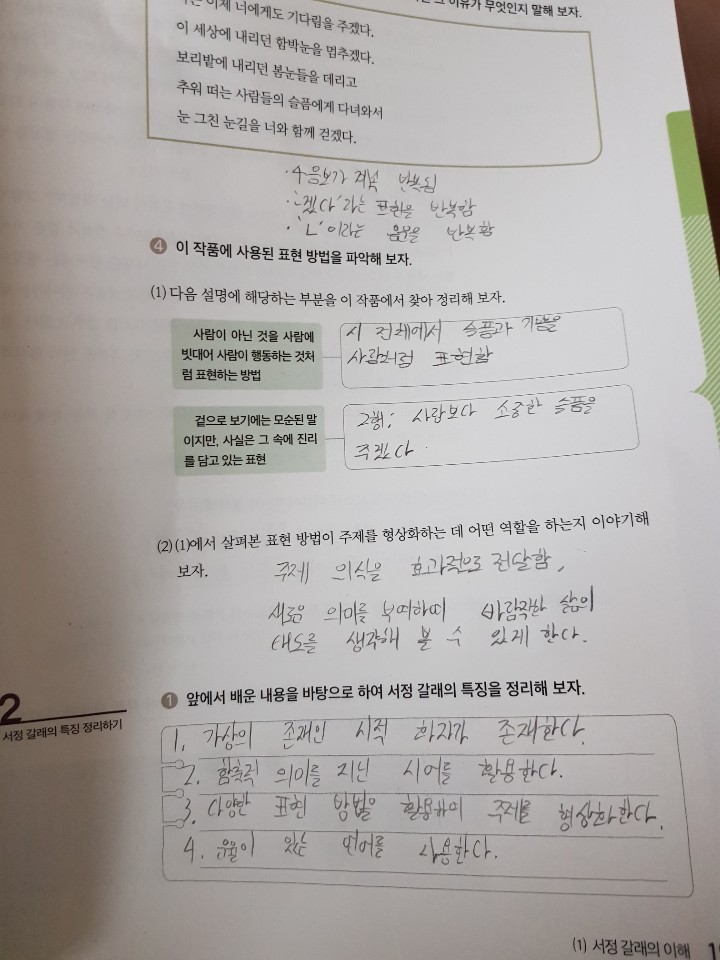 이유가 무엇인지 말해 보자.
이제 너에게도 기다림을 주겠다.
이 세상에 내리던 함박눈을 멈추겠다.
보리밭에 내리던 봄눈들을 데리고
추워 떠는 사람들의 슬픔에게 다녀와서
눈 그친 눈길을 너와 함께 걷겠다.
· 4음보가 계속 반복됨
· '-겠다'라는 표현을 반복함
· 'ㄴ'이라는 음운을 반복함
4 이 작품에 사용된 표현 방법을 파악해 보자.
(1) 다음 설명에 해당하는 부분을 이 작품에서 찾아 정리해 보자.
사람이 아닌 것을 사람에
빗대어 사람이 행동하는 것처
럼 표현하는 방법
시 전체에서 슬픔과 기쁨을
사람처럼 표현함
겉으로 보기에는 모순된 말
이지만, 사실은 그 속에 진리
를 담고 있는 표현
2행: 사람보다 소중한 슬픔을
주겠다
(2) (1)에서 살펴본 표현 방법이 주제를 형상화하는 데 어떤 역할을 하는지 이야기해
보자.
주제 의식을 효과적으로 전달함,
새로운 의미를 부여하며 바람직한 삶의
태도를 생각해 볼 수 있게 한다.
2
서정 갈래의 특징 정리하기
1 앞에서 배운 내용을 바탕으로 하여 서정 갈래의 특징을 정리해 보자.
1. 가상의 존재인 시적 화자가 존재한다.
2. 함축적 의미를 지닌 시어를 활용한다.
3. 다양한 표현 방법을 활용하여 주제를 형상화한다.
4. 운율이 있는 언어를 사용한다.
(1) 서정 갈래의 이해